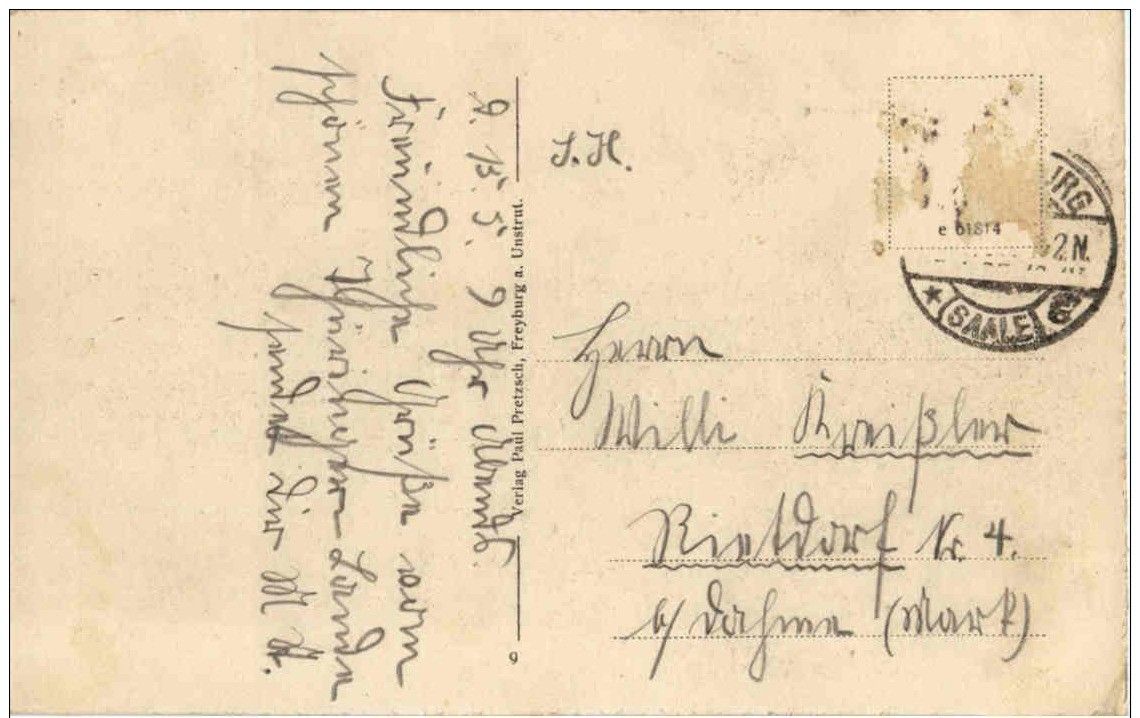 9. 13. 5. 9 Uhr Abends.
Freundliche Grüße vom
schönen Thüringer-Lande
sendet Dir
Verlag Paul Pretzsch, Freyburg a. Unstrut.
9
S. H.
e 61814
URG
2 N.
(SAALE)
Herrn
Willi Kreißler
Rietdorf Nr. 4.
b/ Dahme (Mark)